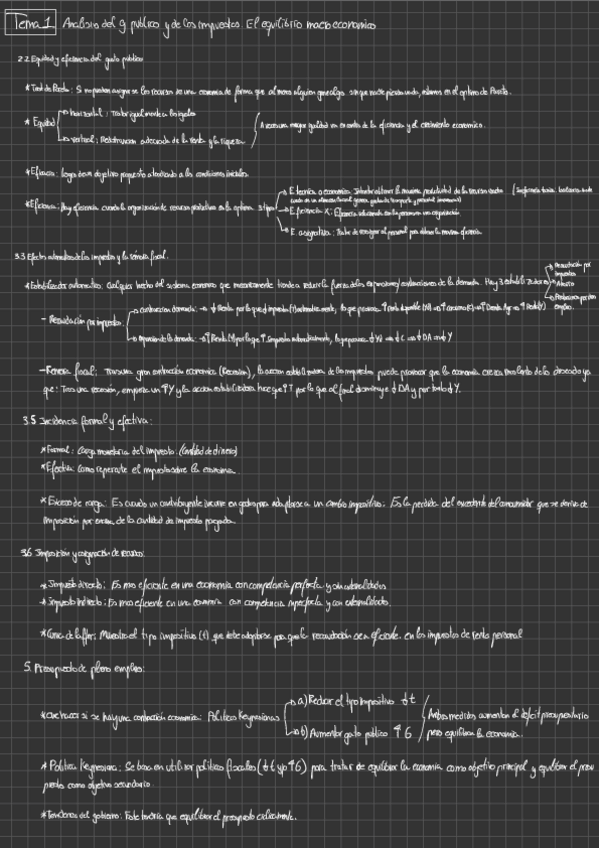 Tema 1 Analisis del g publico y de los impuestos. El equilibrio macroeconomico
2.2 Equidad y eficiencia del gasto publico
* Test de Pareto: Si reasignar los recursos de una economia de forma que al menos alguien gane algo sin que nadie pierda nada, estamos en el optimo de Pareto.
* Equidad
horizontal: Tratar igualmente a los iguales
vertical: Redistribucion adecuada de la renta y la riqueza
A veces una mayor igualdad va en contra de la eficiencia y el crecimiento economico.
* Eficacia: logro de un objetivo propuesto atendiendo a las condiciones iniciales.
* Eficiencia: Hay eficiencia cuando la organización de recursos productivos es la optima. 3 tipos
E. tecnica o economica: obtener la maxima productividad de los recursos usados
E. eficiencia X: Eficiencia relacionada con la organización
E. asignativa: Trata de asignar el personal para obtener la maxima eficiencia.
3.3 Efectos automaticos de los impuestos y la rémora fiscal.
* Estabilizador automatico: Cualquier hecho del sistema economico que mecanicamente tiende a reducir la fuerza de las expansiones/contracciones de la demanda. Hay 3 estabilizadores
Recaudación por impuestos
Ahorro
Prestaciones por desempleo.
- Recaudación por impuestos:
contraccion demanda: → ↓ Renta por lo que ↓ impuestos (T) automaticamente, lo que provoca ↑ Renta disponible (Yd) → ↑ Consumo (C) → ↑ Demanda Agr → ↑ Renta (Y)
expansion de la demanda: → ↑ Renta (Y) por lo que ↑ impuestos automaticamente, lo que provoca ↓ Yd → ↓ C → ↓ DA → ↓ Y
- Remora fiscal: Tras una gran contracción economica (Recesion), la accion estabilizadora de los impuestos puede provocar que la economia crezca mas lento de lo deseado ya
que: Tras una recesión, empieza un ↑Y y la accion estabilizadora hace que ↑T por lo que al final disminuye ↓ DA y por tanto ↓ Y.
3.5 Incidencia formal y efectiva:
* Formal: Carga monetaria del impuesto. (Cantidad de dinero)
* Efectiva: como repercute el impuesto sobre la economia.
* Exceso de carga: Es cuando un contribuyente incurre en gastos para adaptarse a un cambio impositivo. Es la perdida del excedente del consumidor que se deriva de
imposición por encima de la cantidad de impuesto pagada.
3.6 Imposición y asignación de recursos:
→ Impuesto directo: Es mas eficiente en una economia con competencia perfecta y sin externalidades
→ impuesto indirecto: Es mas eficiente en una economia con competencia imperfecta y con externalidades.
* Curva de Laffer: Muestra el tipo impositivo (t) que debe adoptarse para que la recaudación sea eficiente. en los impuestos de renta personal
5. Presupuesto de pleno empleo:
* Que hacer si se hay una contracción economica: Politicas Keynesianas
a) Reducir el tipo impositivo ↓ t
b) Aumentar gasto publico ↑ G
Ambas medidas aumentan el deficit presupuestario
pero equilibran la economia.
* Politica Keynesiana: Se basa en utilizar politicas fiscales (↓t y/o ↑G) para tratar de equilibrar la economia como objetivo principal y equilibrar el presu
puesto como objetivo secundario.
* Tendencias del gobierno: Este tendria que equilibrar el presupuesto ciclicamente.